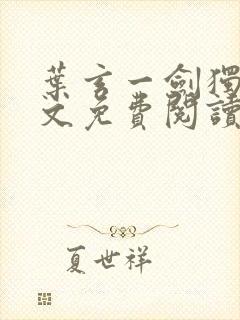 葉玄一劍獨
文免費閱讀
夏世祥